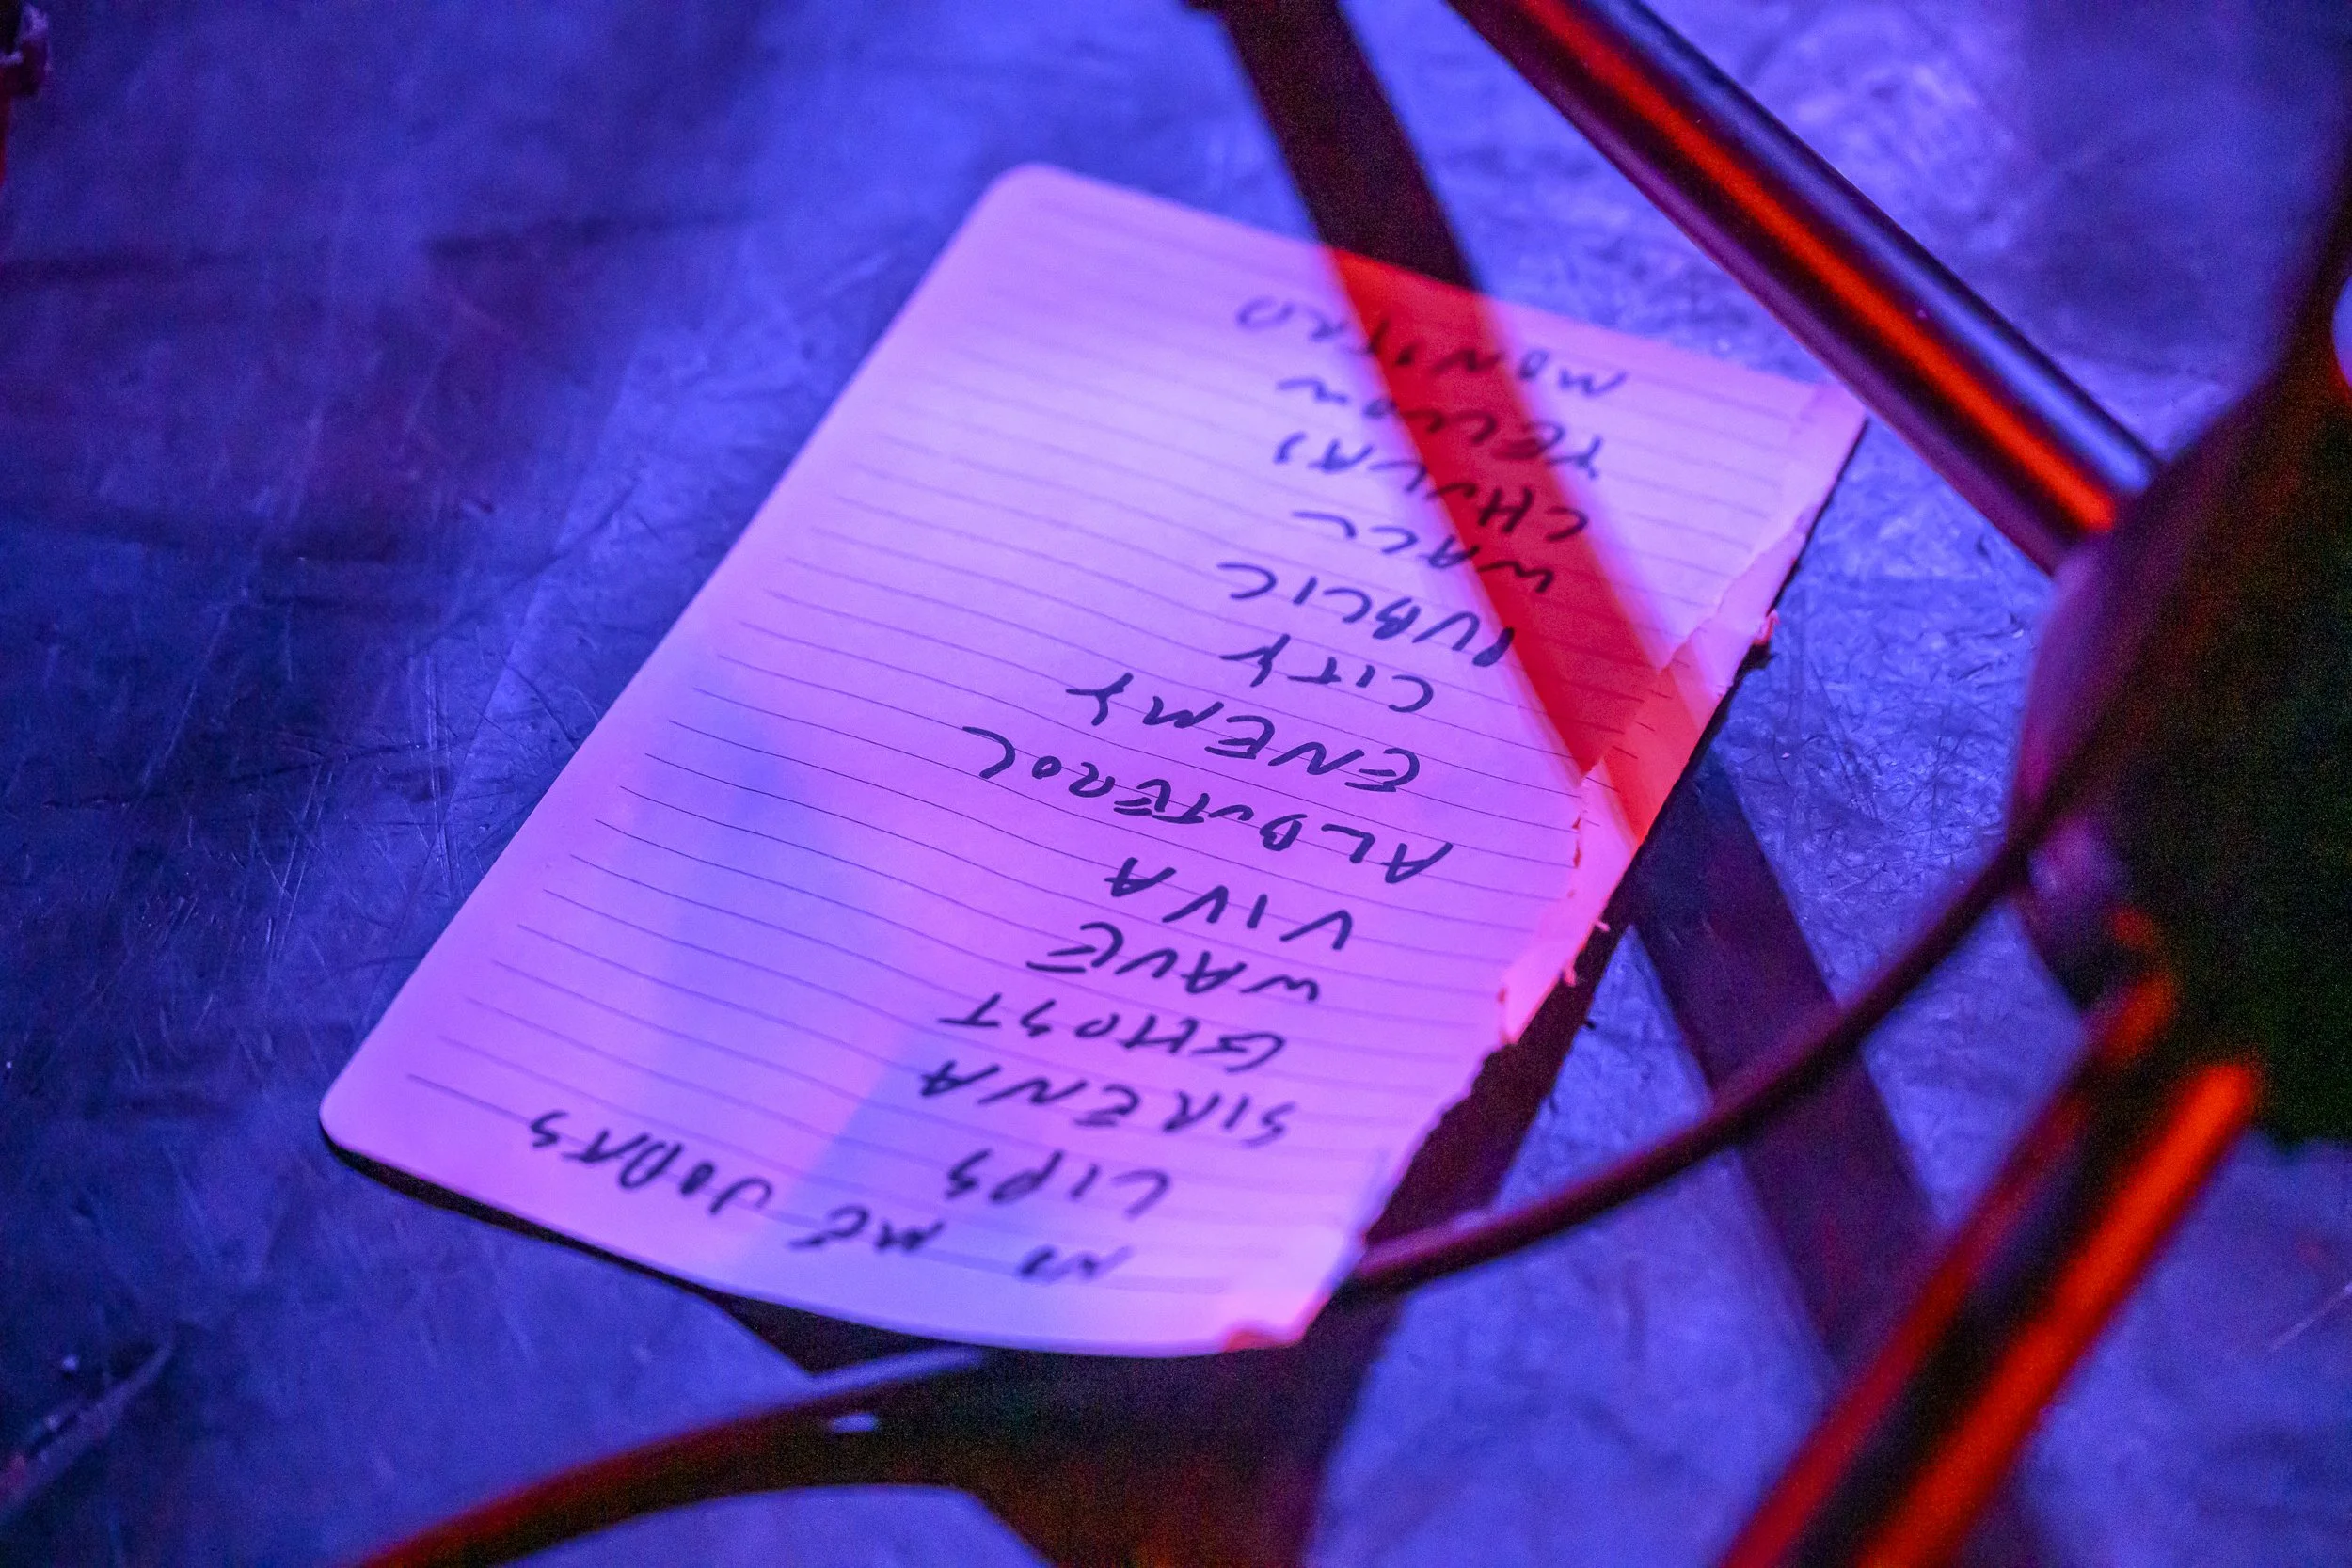 NO ME JODAS
LIPS
SIRENA
GHOST
WAVE
VIVA
ALBUTEROL
ENEMY
CITY
PUBLIC
WALL
CHULAS
YELLOW